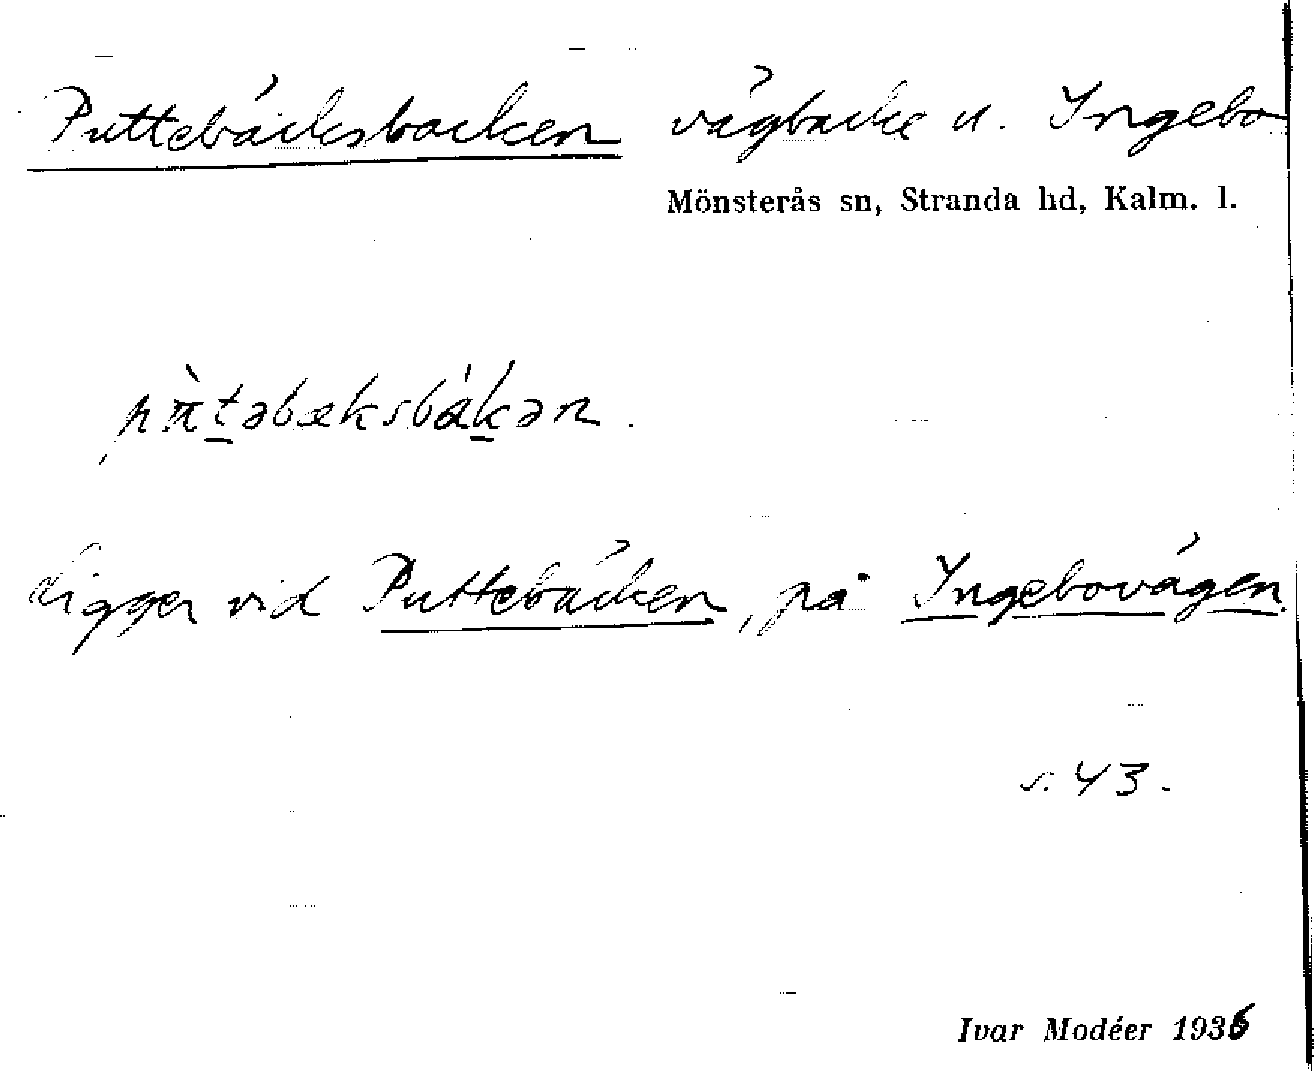 Puttebäcksbacken vägbacke u. Ingebo
Mönsterås sn, Stranda hd, Kalm. l.
Ligger vid Puttebäcken, på Ingebovägen.
s. 43.
Ivar Modéer 1936